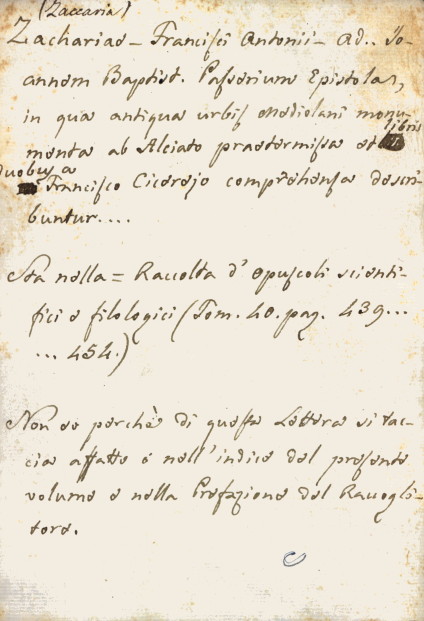 (Zaccaria)
Zachariae - Francisci Antonii - ad.. Jo-
annem Baptist. Passerium Epistolae,
in qua antiqua urbis Mediolani monu-
libris
menta ab Alciato praetermissa et
duobus a
Francisco Cicerejo comprehensa descri-
buntur....
Sta nella = Raccolta d'opuscoli scienti-
fici e filologici (Tom. 40. pag. 439...
... 454.)
Non so perchè di questa Lettera si tac-
cia affatto e nell'indice del presente
volume e nella Prefazione del Raccogli-
tore.